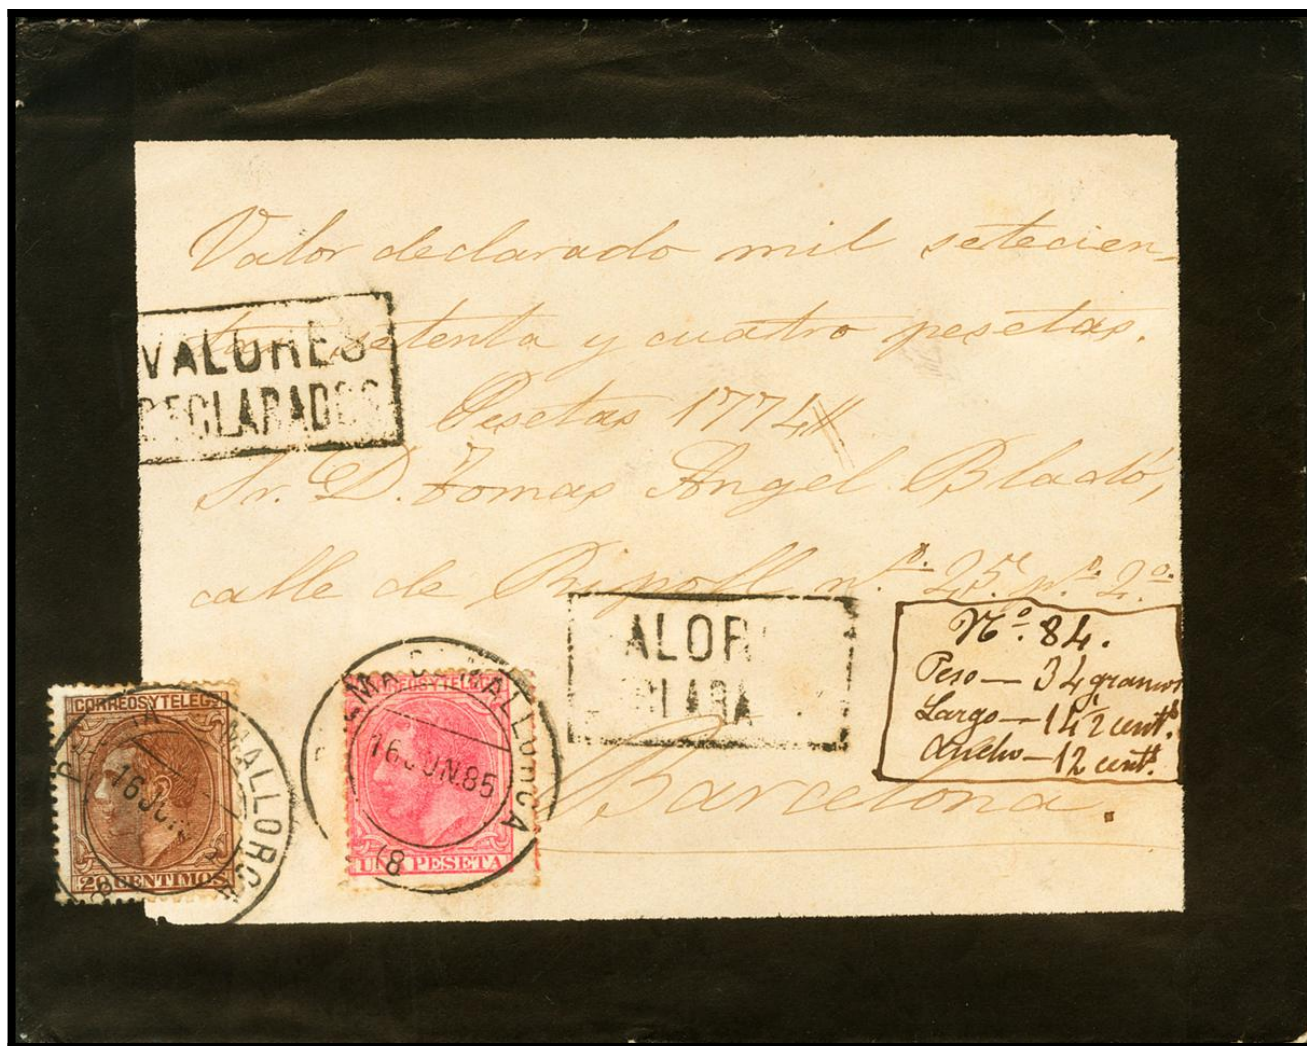 Valor declarado mil setecien-
tas setenta y cuatro pesetas.
VALORES
DECLARADOS
Pesetas 1774
Sr. D. Tomas Angel Bladó,
calle de Ripoll n.º 25, p.º 2.º
ALOR
CLARA
Nº. 84.
Peso — 34 gramos
Largo — 14½ cent.ˢ
Ancho — 12 cent.ˢ
Barcelona.
CORREOS Y TELEGS
20 CENTIMOS
MALLORCA
16 JUN
CORREOS Y TELEGS
UNA PESETA
PALMA DE MALLORCA
16 JUN.85